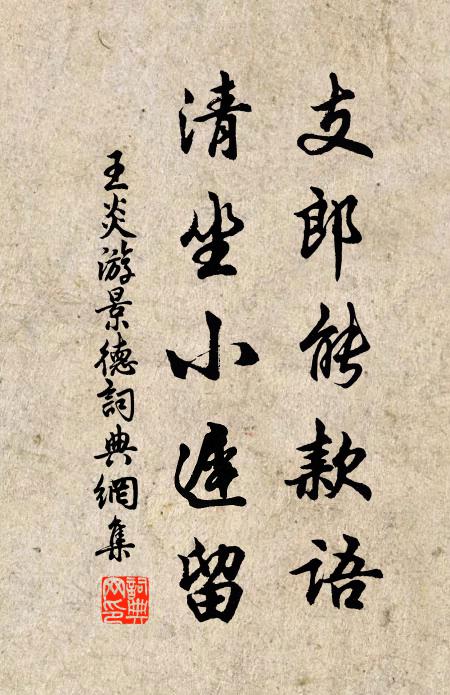 支郎能款语
清坐小遲留
王炎游景德詞典網集
詞典網印